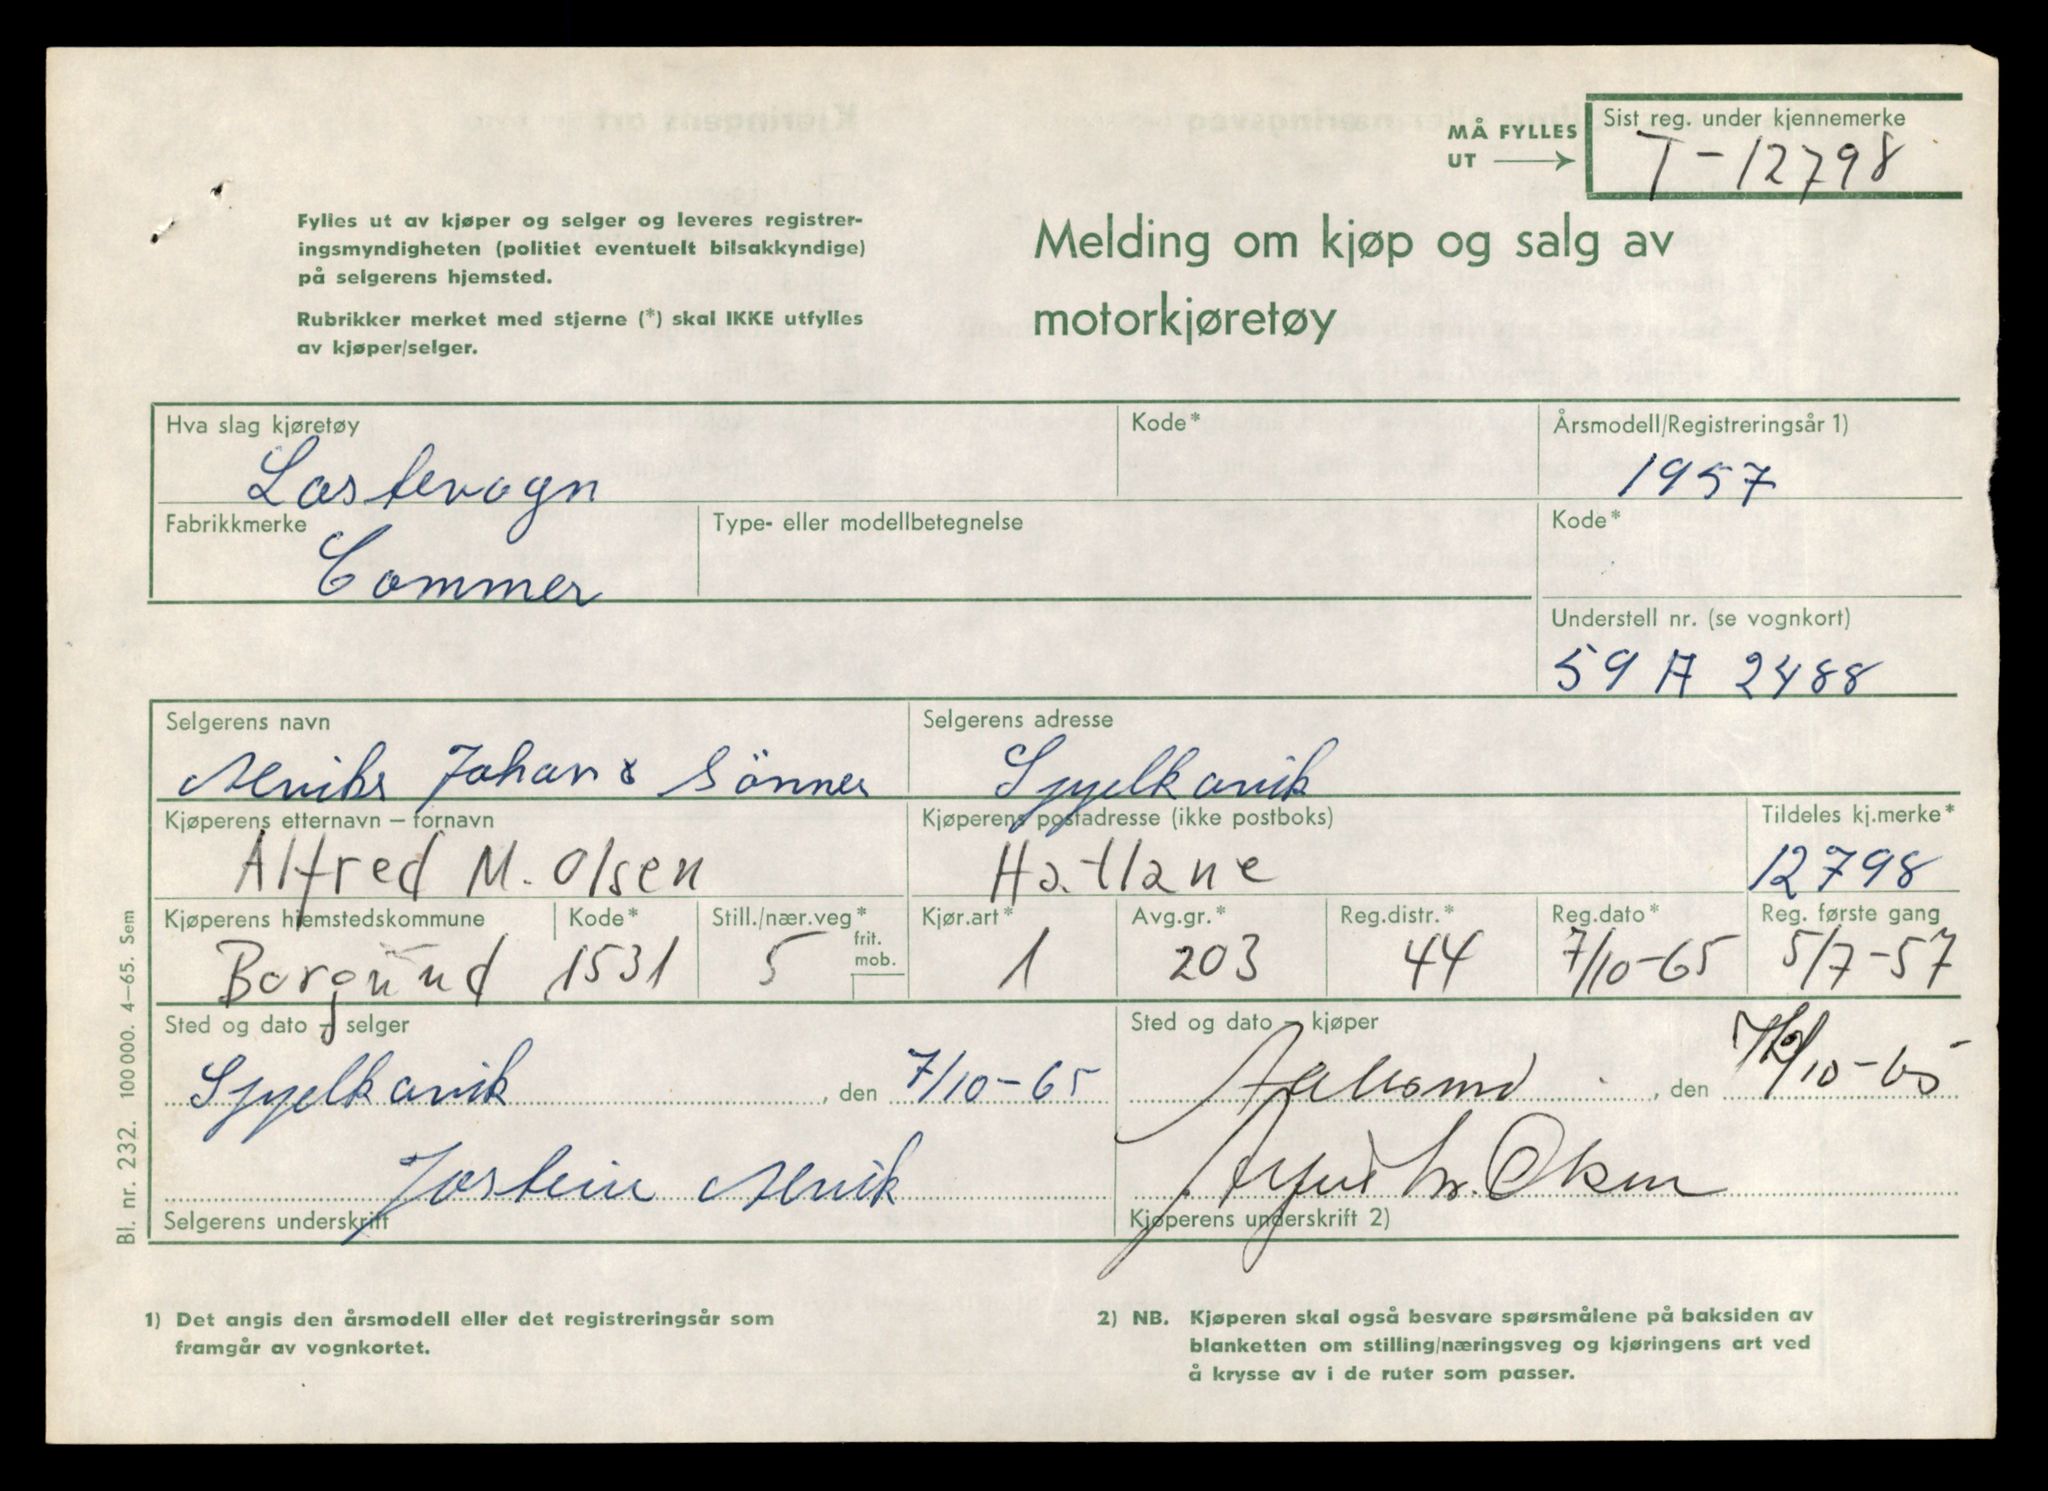 MÅ FYLLES UT →
Sist reg. under kjennemerke
T-12798
Fylles ut av kjøper og selger og leveres registrer-
ingsmyndigheten (politiet eventuelt bilsakkyndige)
på selgerens hjemsted.
Rubrikker merket med stjerne (*) skal IKKE utfylles
av kjøper/selger.
Melding om kjøp og salg av
motorkjøretøy
Hva slag kjøretøy
Lastevogn
Kode*
Årsmodell/Registreringsår 1)
1957
Fabrikkmerke
Commer
Type- eller modellbetegnelse
Kode*
Understell nr. (se vognkort)
59 A 2488
Selgerens navn
Johan & Sönner
Selgerens adresse
Spjelkavik
Kjøperens etternavn – fornavn
Alfred M. Olsen
Kjøperens postadresse (ikke postboks)
Hatlane
Tildeles kj.merke*
12798
Kjøperens hjemstedskommune
Borgund
Kode*
1531
Still./nær.veg*
5
frit.
mob.
Kjør.art*
1
Avg.gr.*
203
Reg.distr.*
44
Reg.dato*
7/10-65
Reg. første gang
5/7-57
Sted og dato – selger
Spjelkavik, den 7/10-65
Jostein
Selgerens underskrift
Sted og dato – kjøper
Aalesund, den 7/10-65
Alfred M. Olsen
Kjøperens underskrift 2)
Bl. nr. 232. 100 000. 4–65. Sem
1) Det angis den årsmodell eller det registreringsår som
framgår av vognkortet.
2) NB. Kjøperen skal også besvare spørsmålene på baksiden av
blanketten om stilling/næringsveg og kjøringens art ved
å krysse av i de ruter som passer.